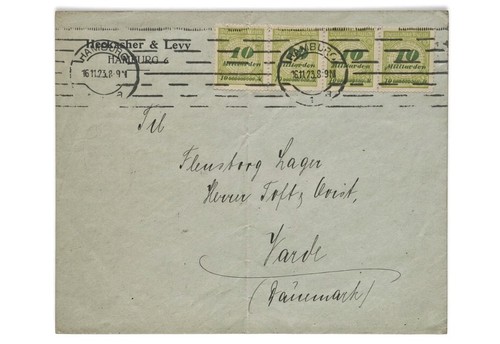 Heckscher & Levy
HAMBURG 6
HAMBURG
16.11.23.8-9N
1 a
HAMBURG
16.11.23.8-9N
1 a
10
Milliarden
10
Milliarden
10
Milliarden
10
Milliarden
Til
Flensborg Lager
Herrer Toft & Qvist,
Varde
(Dänemark)